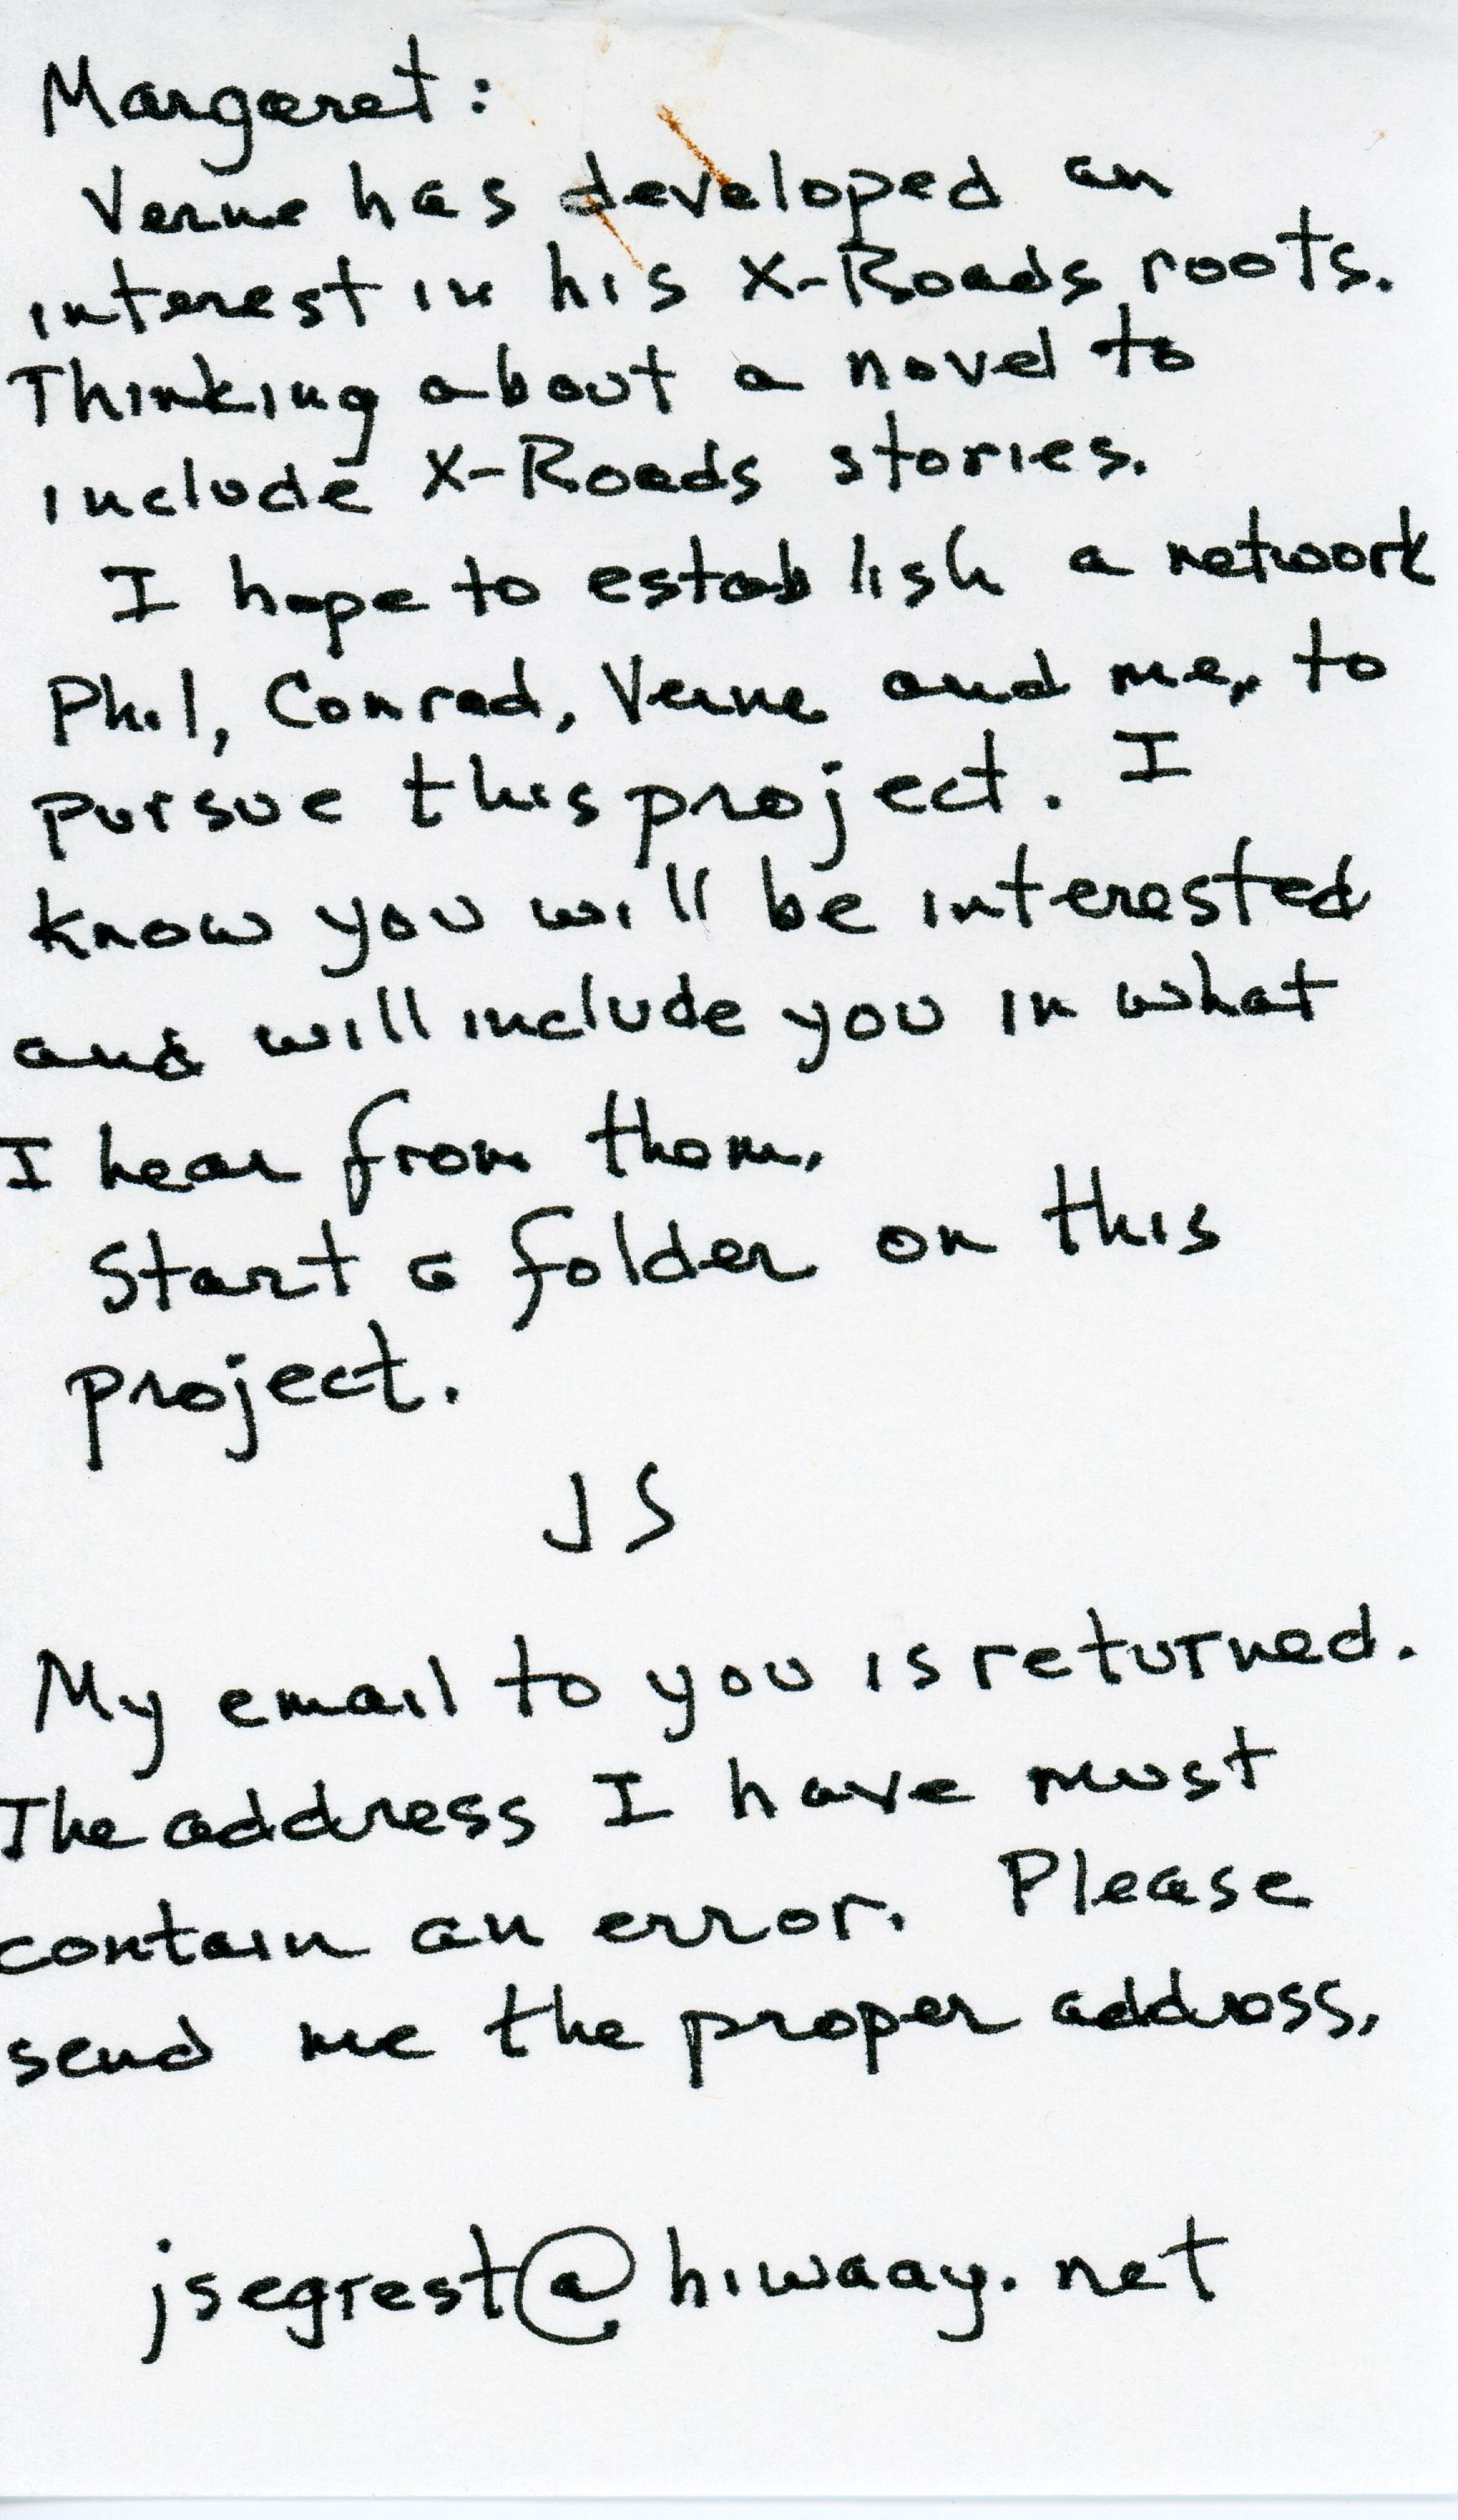 Margaret:
Verne has developed an
interest in his X-Roads roots.
Thinking about a novel to
include X-Roads stories.
I hope to establish a network
Phil, Conrad, Verne and me, to
pursue this project. I
know you will be interested
and will include you in what
I hear from them.
Start a folder on this
project.
JS
My email to you is returned.
The address I have must
contain an error. Please
send me the proper address.
jsegrest@hiwaay.net